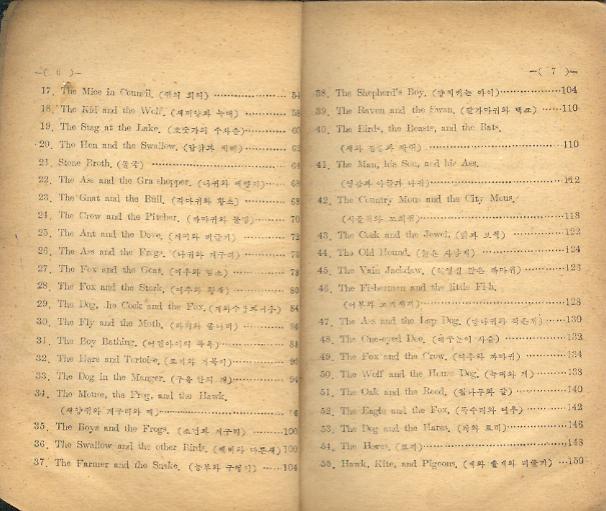 —( 6 )—
17. The Mice in Council. (쥐의 회의) 54
18. The Kid and the Wolf. 58
19. The Stag at the Lake. 60
20. The Hen and the Swallow. (암탉과 제비) 62
21. Stone Broth. 64
22. The Ass and the Grasshopper. 68
23. The Gnat and the Bull. (각다귀와 황소) 68
24. The Crow and the Pitcher. (까마귀와 물병) 70
25. The Ant and the Dove. (개미와 비둘기) 72
26. The Ass and the Frogs. (나귀와 개구리) 76
27. The Fox and the Goat. (여우와 염소) 78
28. The Fox and the Stork. (여우와 황새) 80
29. The Dog, the Cock and the Fox. 84
30. The Fly and the Moth. 86
31. The Boy Bathing. 88
32. The Hare and Tortoise. (토끼와 거북이)
33. The Dog in the Manger. 94
34. The Mouse, the Frog, and the Hawk.
(생쥐와 개구리와 매)
35. The Boys and the Frogs. (소년과 개구리) 100
36. The Swallow and the other Birds. (제비와 다른새) 100
37. The Farmer and the Snake. (농부와 구렁이) 104
—( 7 )—
38. The Shepherd's Boy. (양치는 아이) 104
39. The Raven and the Swan. 110
40. The Birds, the Beasts, and the Bats.
(새와 짐승과 박쥐) 110
41. The Man, his Son, and his Ass.
(영감과 아들과 나귀) 112
42. The Country Mous and the City Mous.
118
43. The Cock and the Jewel. (닭과 보석) 122
44. The Old Hound. (늙은 사냥개) 124
45. The Vain Jackdaw. 126
46. The Fisherman and the little Fish.
128
47. The Ass and the Lap Dog. 130
48. The One-eyed Doe. (애꾸눈이 사슴) 132
49. The Fox and the Crow. (여우와 까마귀) 134
50. The Wolf and the House Dog. (늑대와 개) 138
51. The Oak and the Reed. 140
52. The Eagle and the Fox. (독수리와 여우) 142
53. The Dog and the Hares. (개와 토끼) 146
54. The Hares. (토끼) 148
55. Hawk, Kite, and Pigeons. (매와 솔개와 비둘기) 150